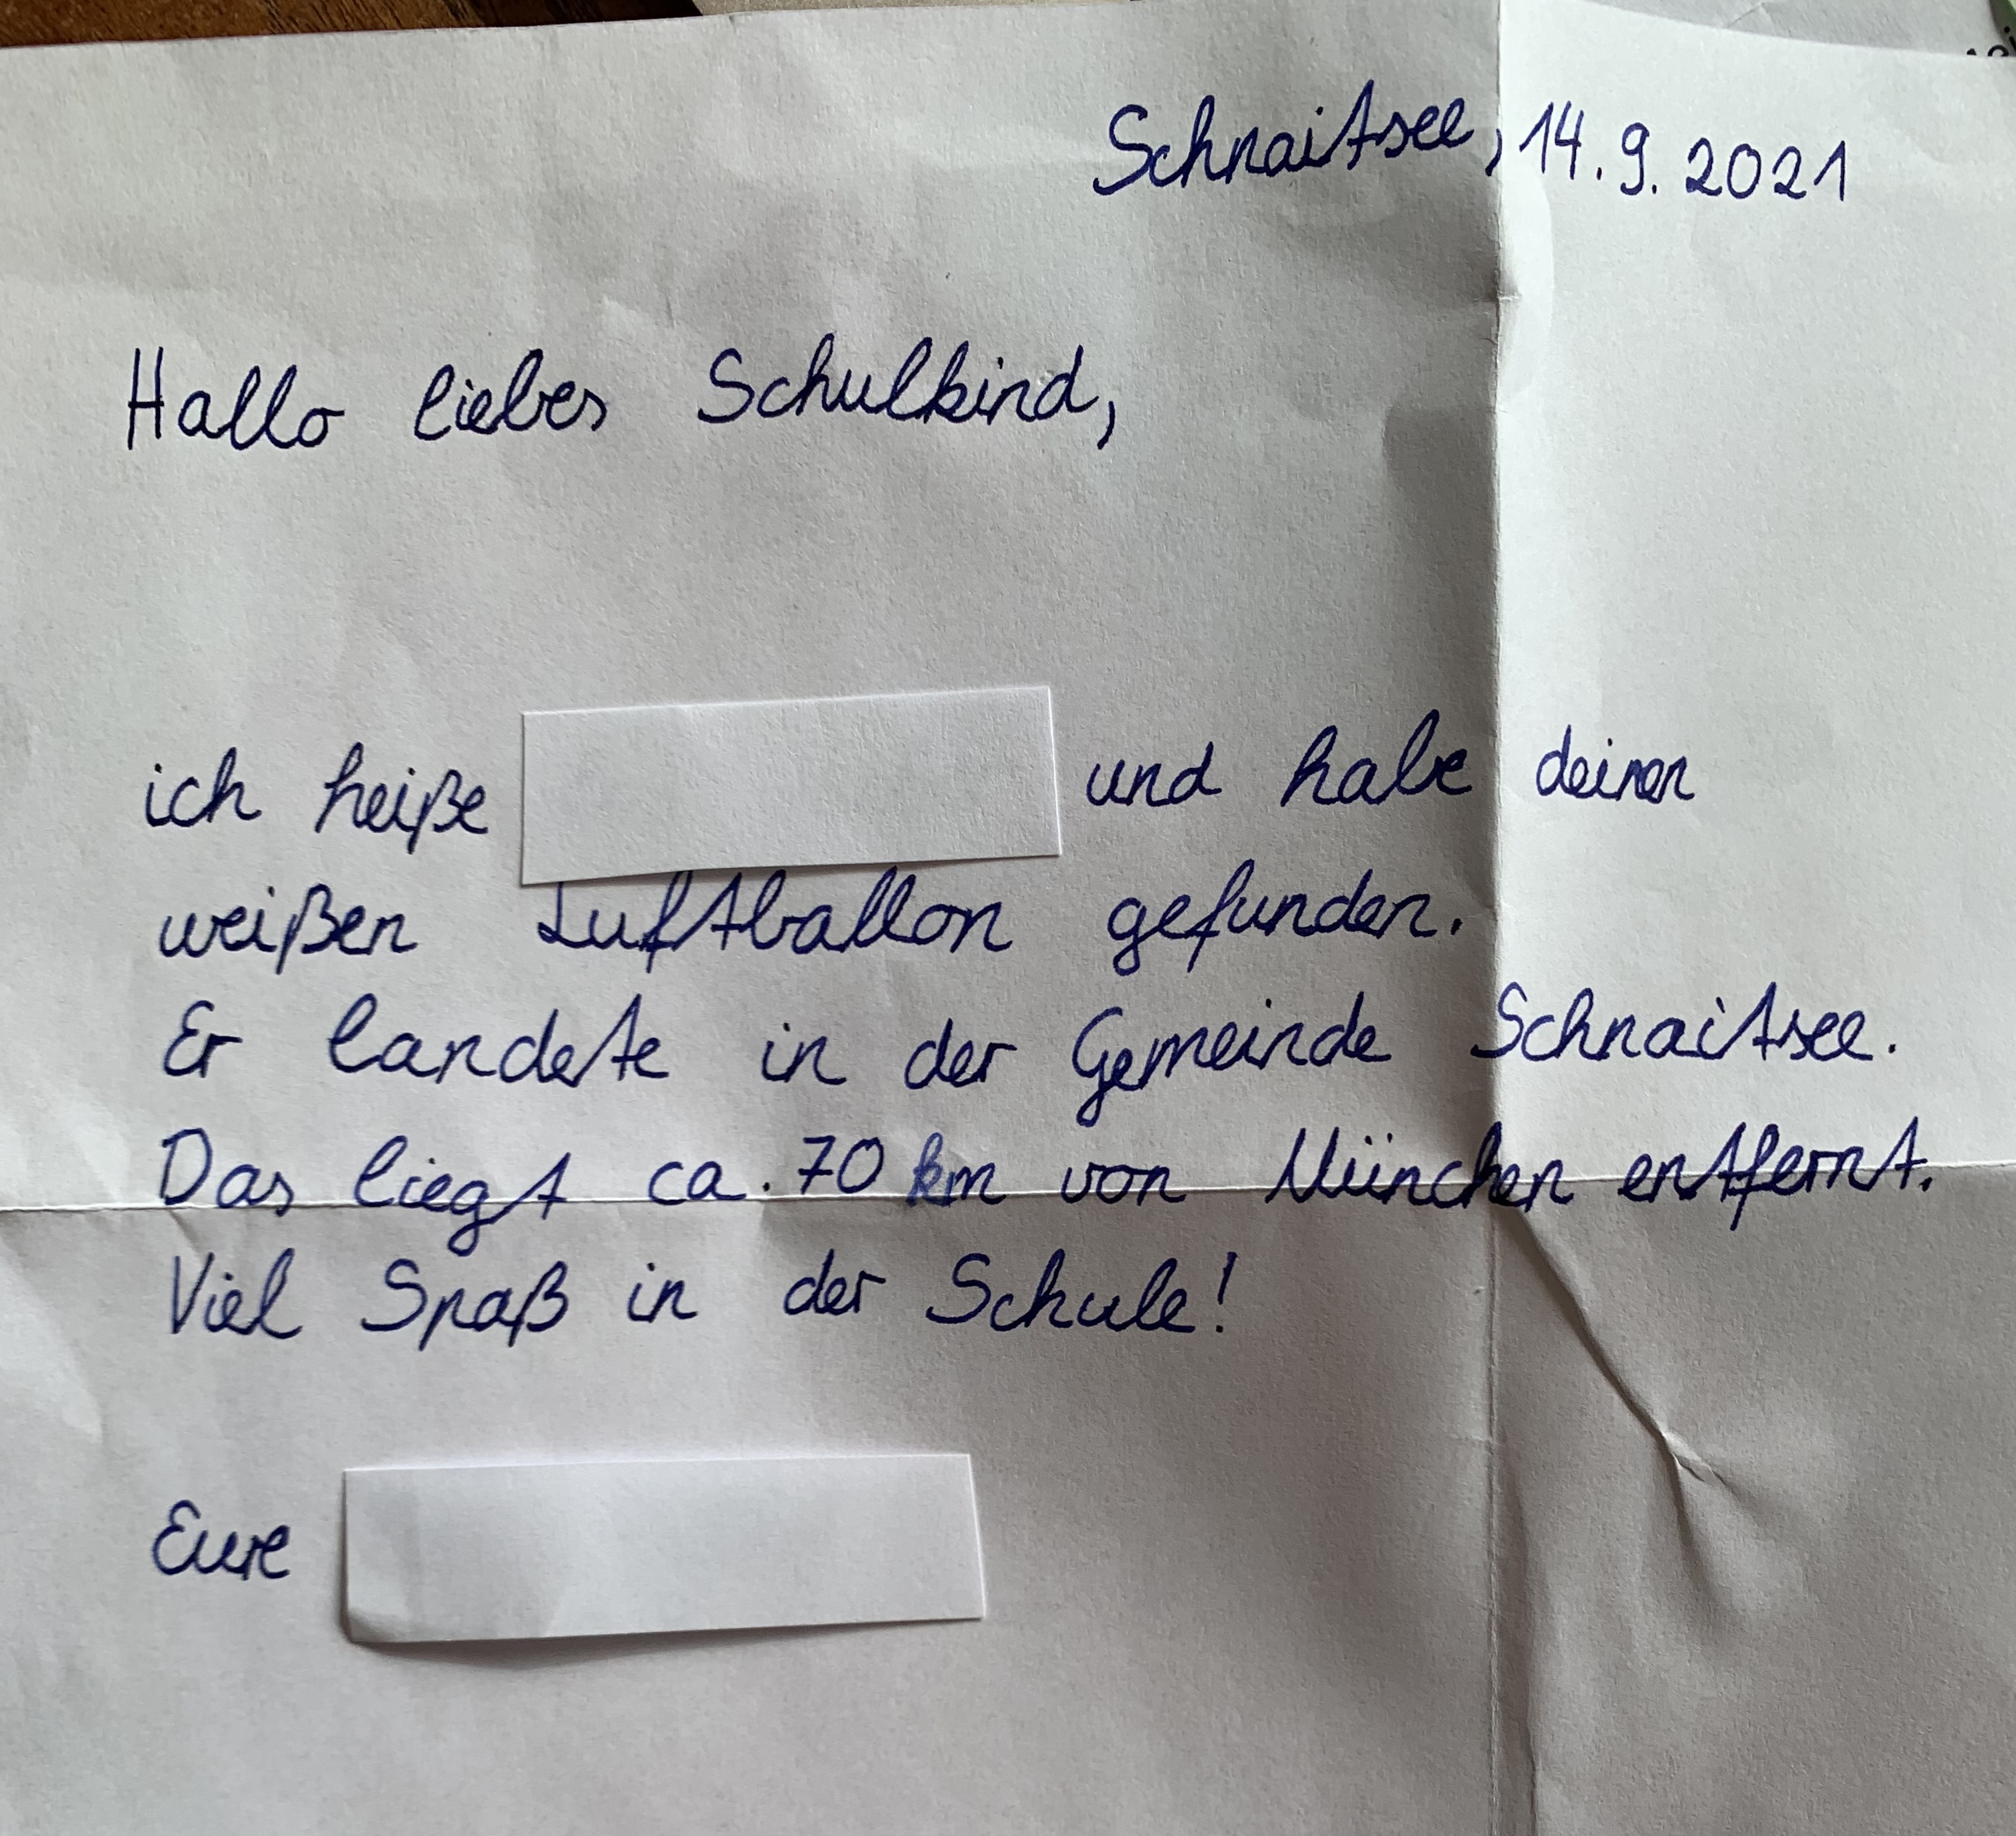 Schnaitsee, 14.9.2021
Hallo liebes Schulkind,
ich heiße und habe deinen
weißen Luftballon gefunden.
Er landete in der Gemeinde Schnaitsee.
Das liegt ca. 70 km von München entfernt.
Viel Spaß in der Schule!
Eure